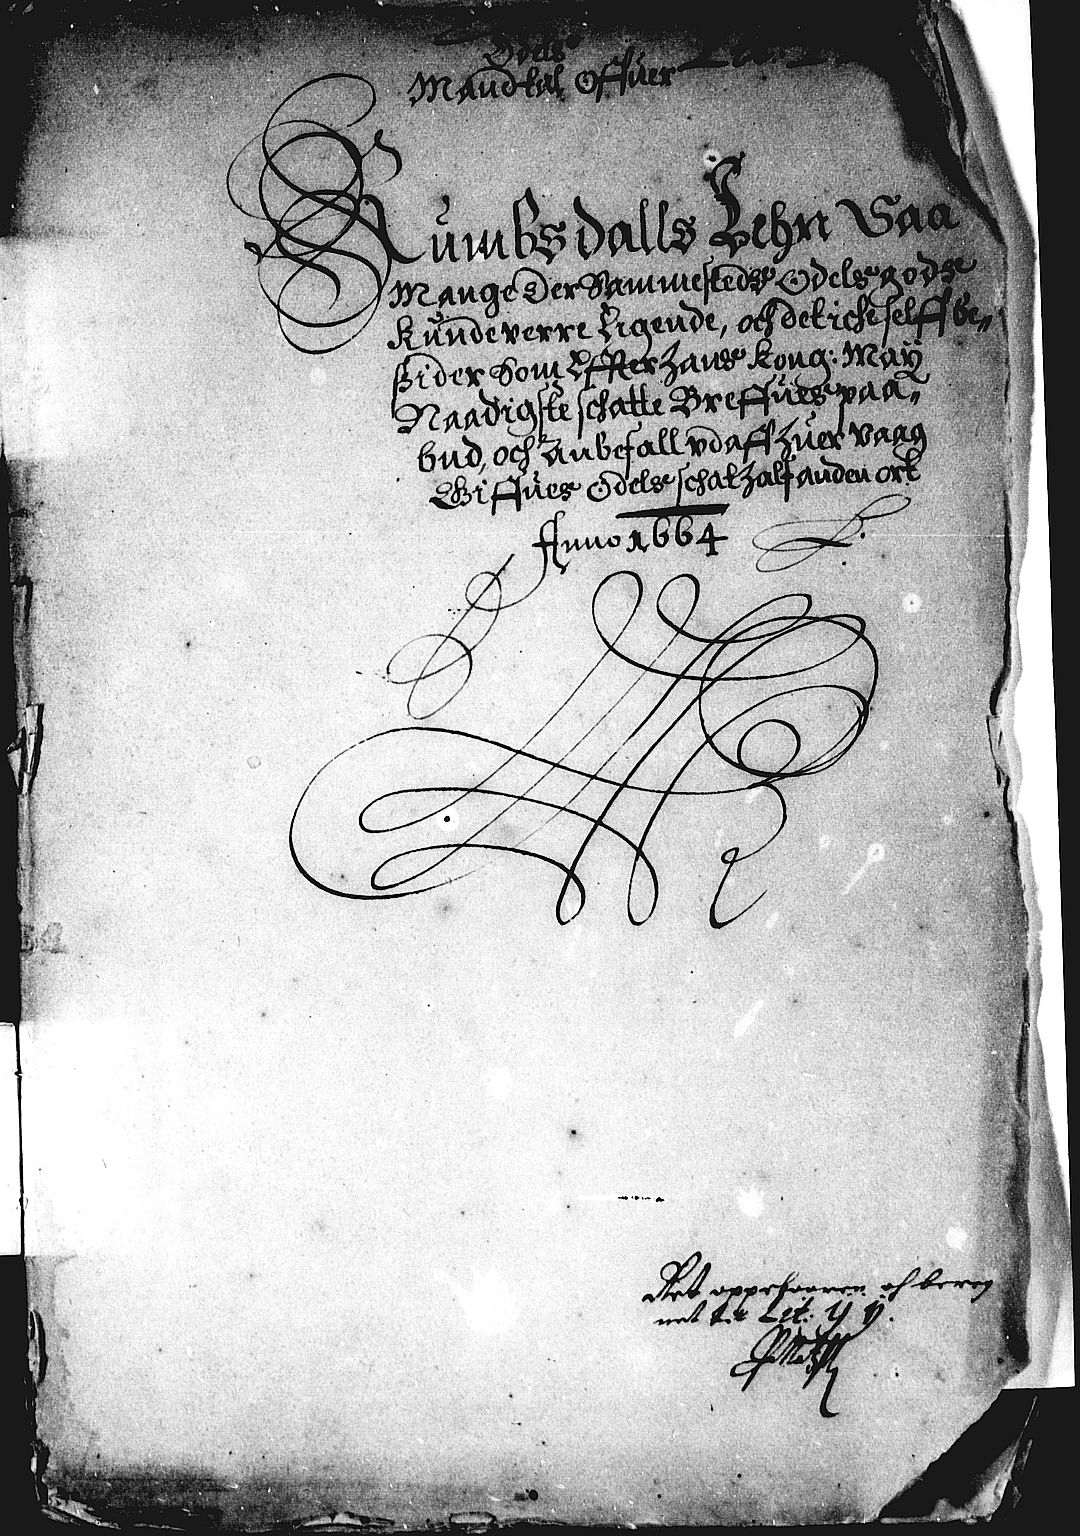 Odels
Mandtal Offuer
Rumbsdalls Lehn Saa
Mange Der Sammesteds Odels godz
Kunde verre Ligende, och det iche selff be„
sider Som Effter Hans Kong: May
Naadigste schatte Breffues paa„
bud, och Anbefall vdaff Huer vaag
Giffues Odels schat Half anden ort
Anno 1664
Ret opperfaaren och bereg
net til Lit: Y y.